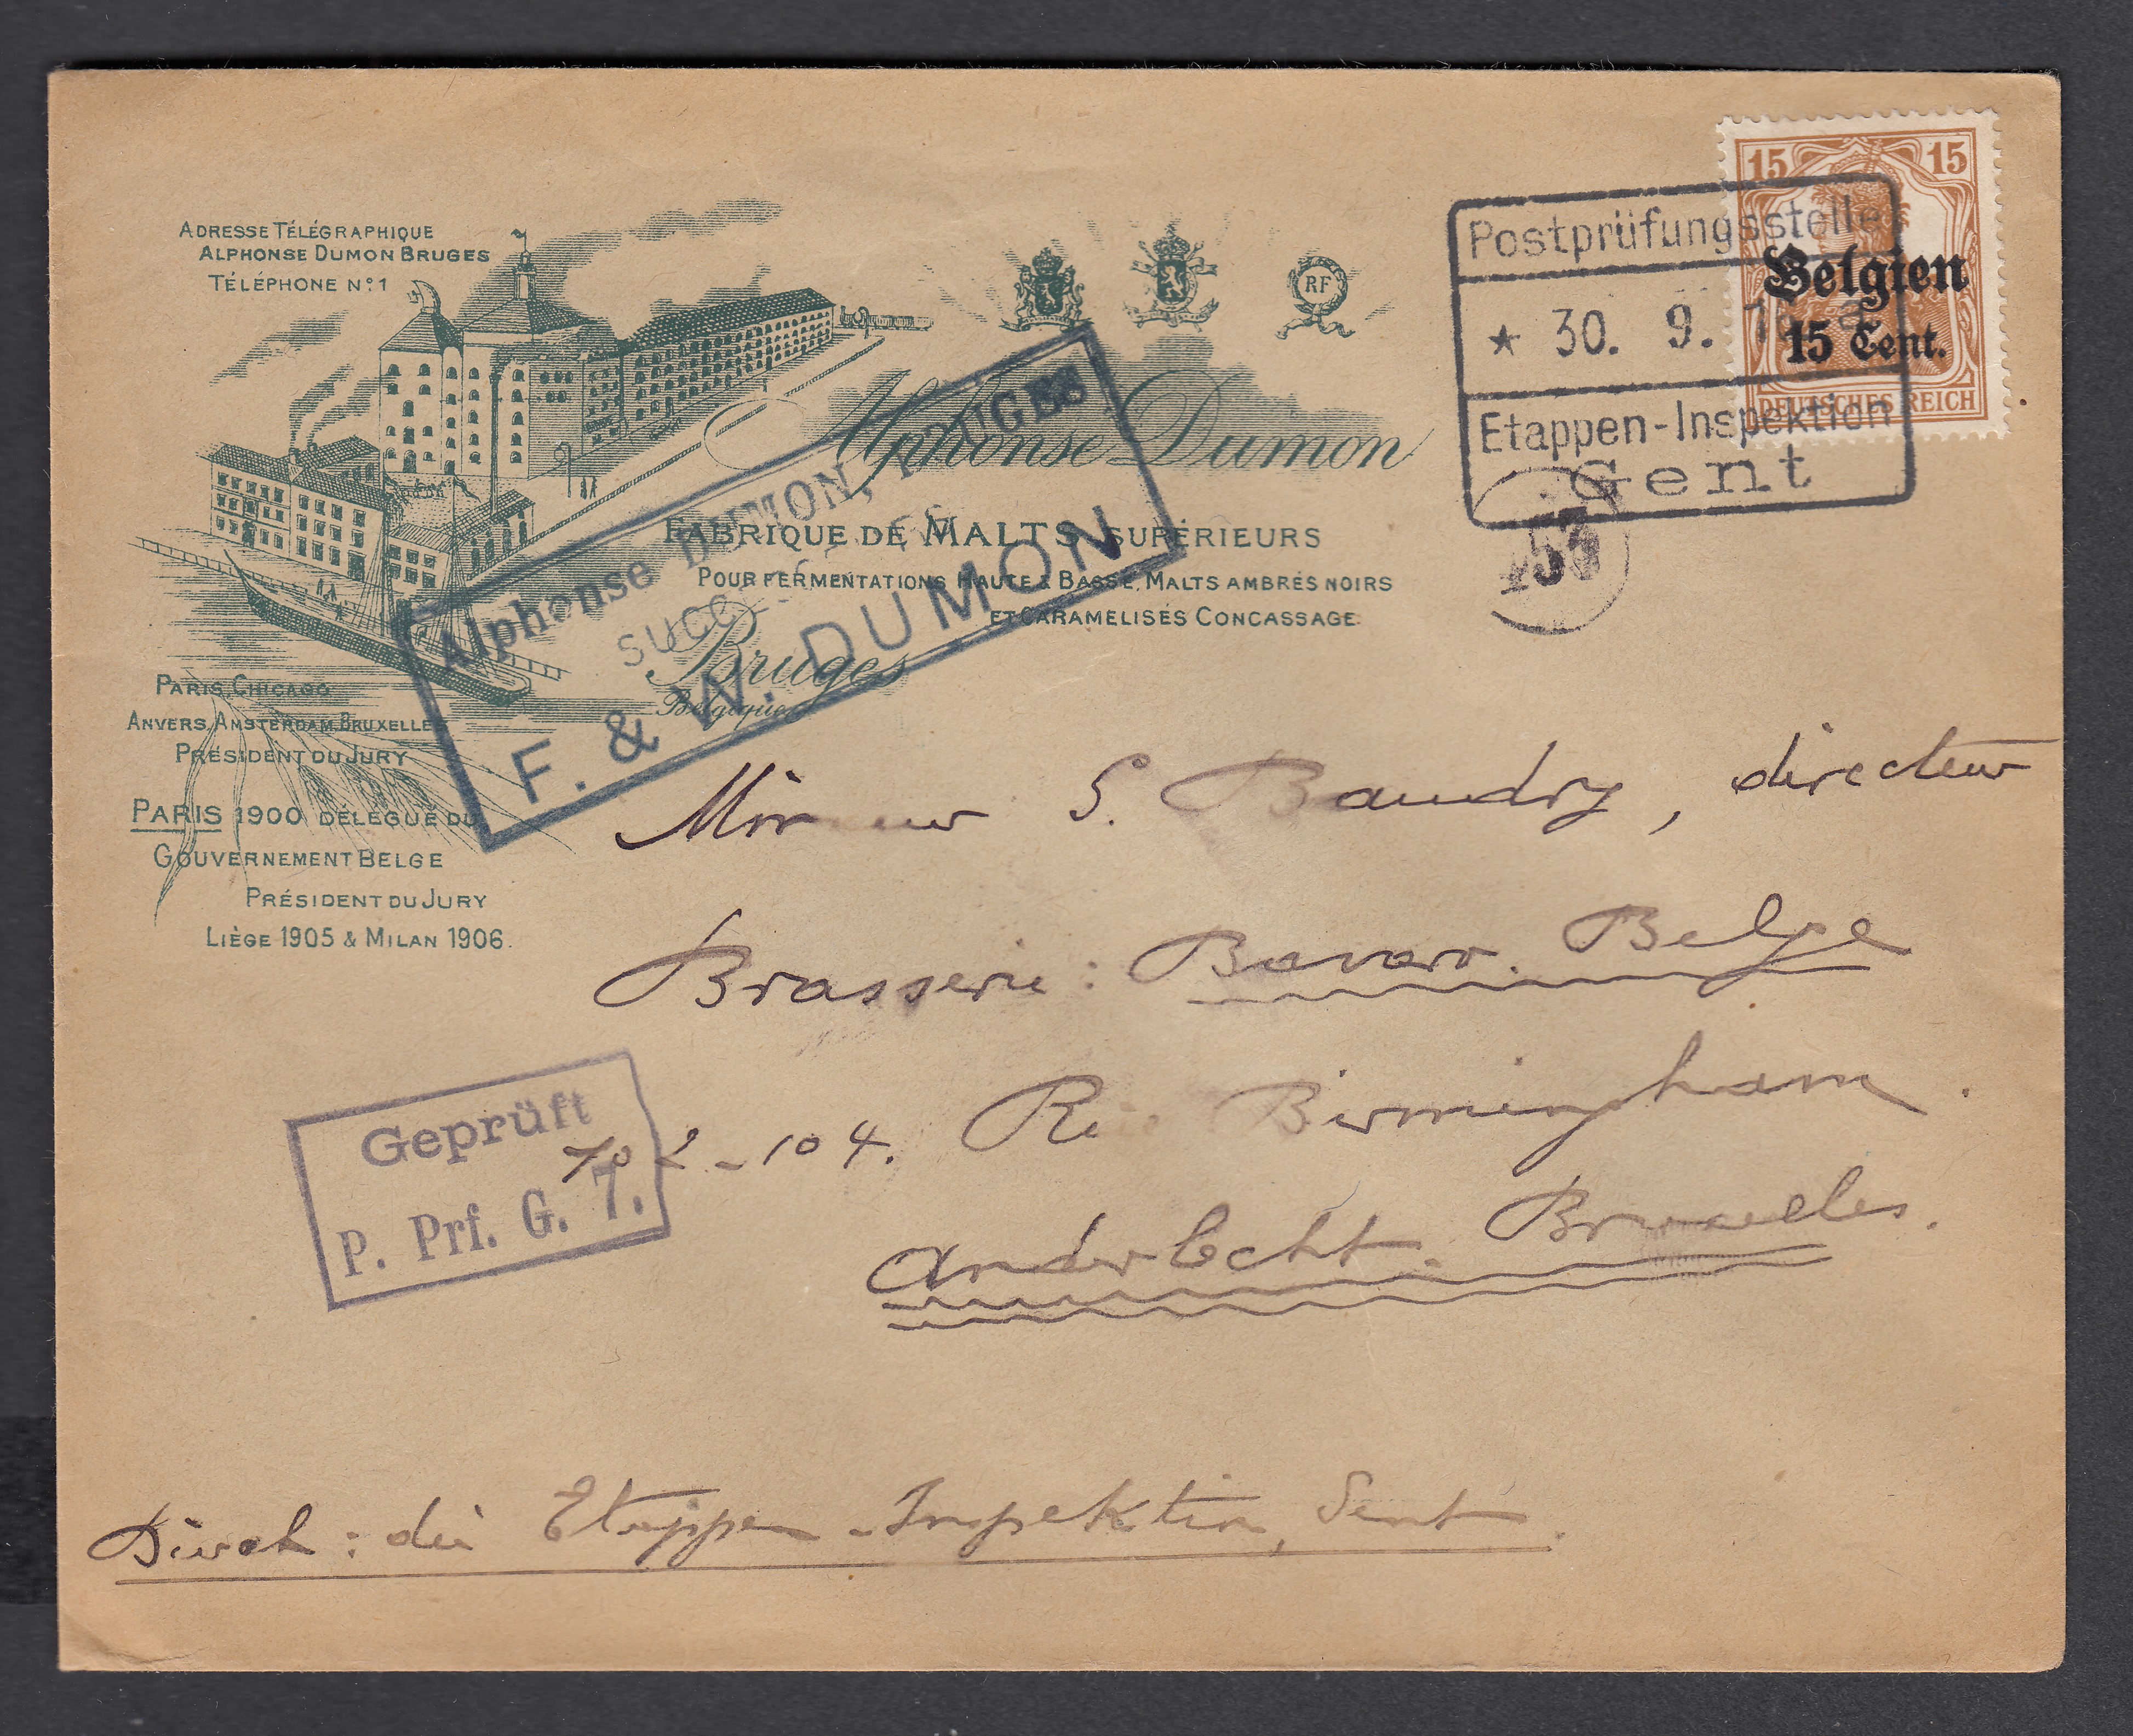 ADRESSE TÉLÉGRAPHIQUE
ALPHONSE DUMON BRUGES
TÉLÉPHONE N° 1
RF
Alphonse Dumon
FABRIQUE DE MALTS SUPÉRIEURS
POUR FERMENTATIONS HAUTE & BASSE, MALTS AMBRÉS NOIRS
ET CARAMELISÉS CONCASSAGE.
Bruges
Belgique
PARIS, CHICAGO
ANVERS, AMSTERDAM, BRUXELLES
PRÉSIDENT DU JURY
PARIS 1900 DÉLÉGUÉ DU
GOUVERNEMENT BELGE
PRÉSIDENT DU JURY
LIÈGE 1905 & MILAN 1906.
Alphonse DUMON, BRUGES
F. & W. DUMON
15 15
Belgien
15 Cent.
DEUTSCHES REICH
Postprüfungsstelle
★ 30. 9.
Etappen-Inspektion
Gent
Monsieur S. Baudry, directeur
Brasserie: Bavaro. Belge
102-104. Rue Birmingham.
Anderlecht. Bruxelles.
Geprüft
P. Prf. G. 7.
Durch: die Etappen-Inspektion, Gent.